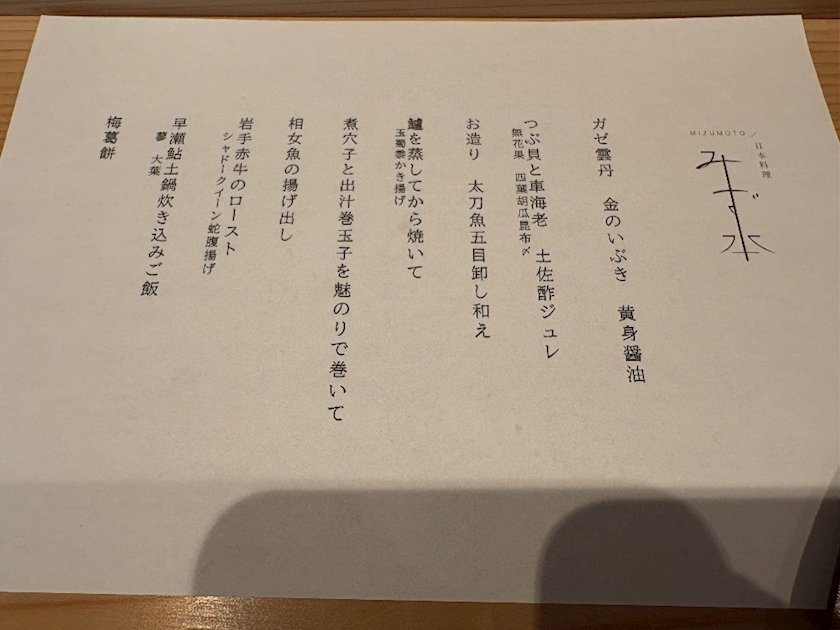 MIZUMOTO / 日本料理
みず本
ガゼ雲丹　金のいぶき　黄身醤油
つぶ貝と車海老　土佐酢ジュレ
無花果　四葉胡瓜昆布〆
お造り　太刀魚五目卸し和え
鱸を蒸してから焼いて
玉蜀黍かき揚げ
煮穴子と出汁巻玉子を魅のりで巻いて
相女魚の揚げ出し
岩手赤牛のロースト
シャドークイーン蛇腹揚げ
早瀬鮎土鍋炊き込みご飯
蓼　大葉
梅葛餅